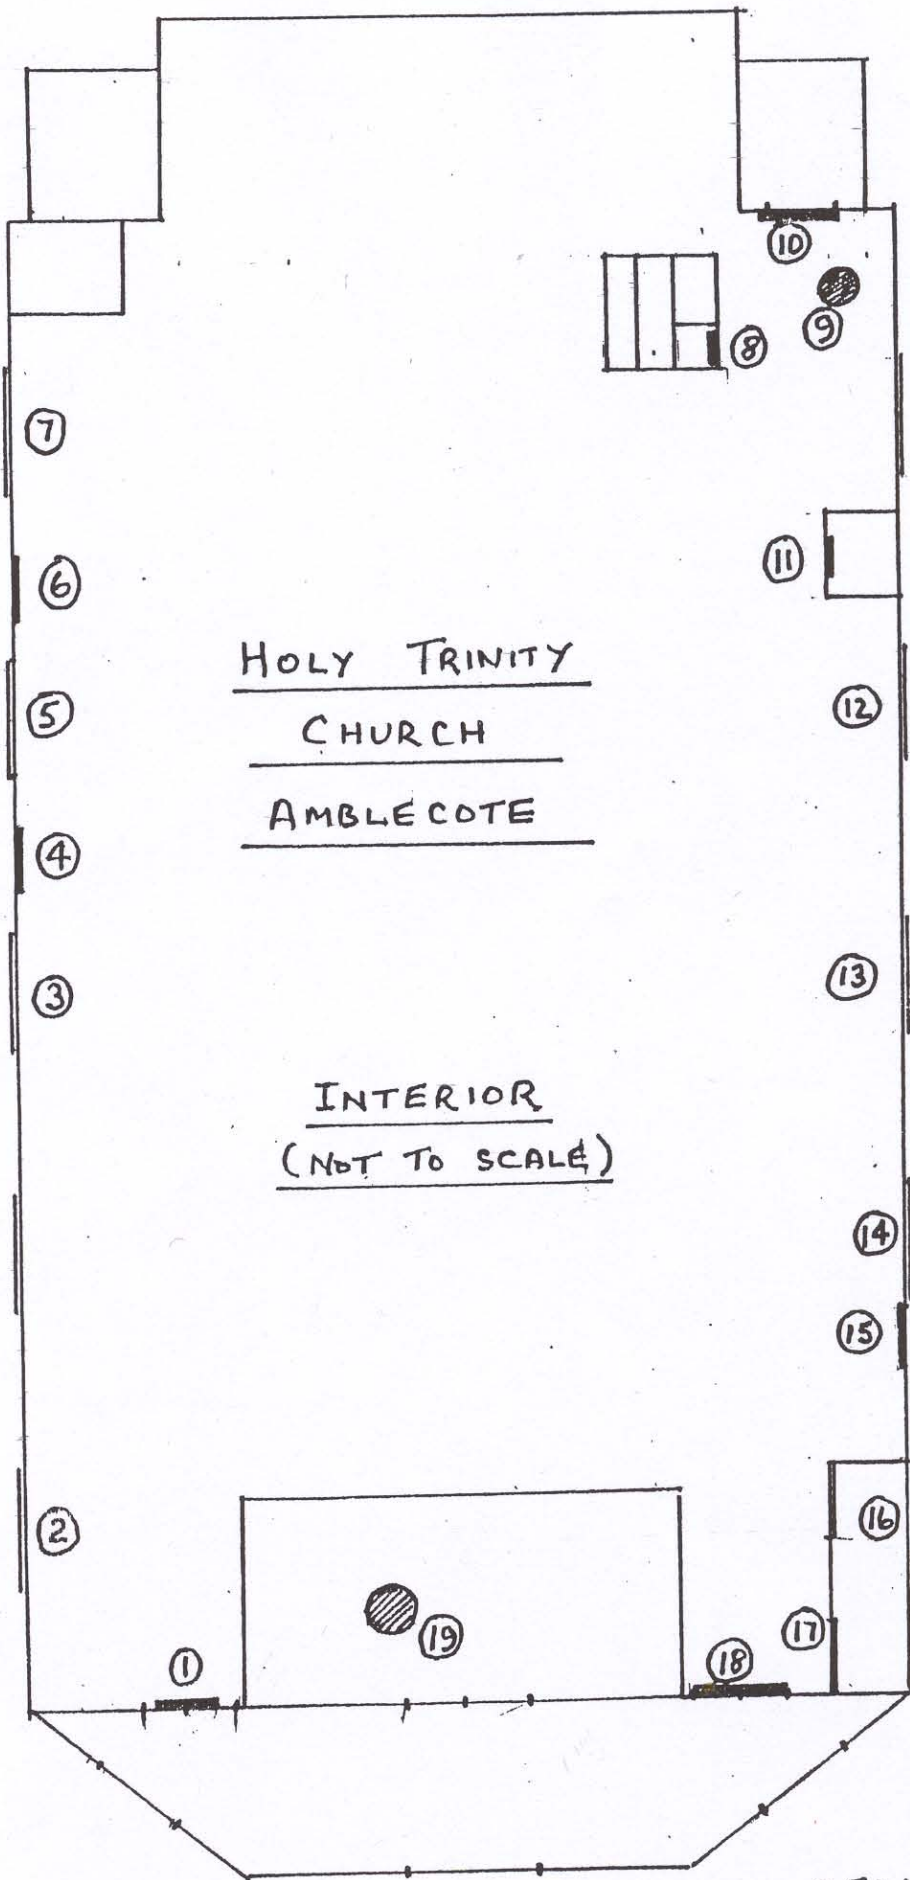 10
9
8
7
11
6
HOLY TRINITY
5
12
CHURCH
AMBLECOTE
4
13
3
INTERIOR
(NOT TO SCALE)
14
15
2
16
17
19
1
18